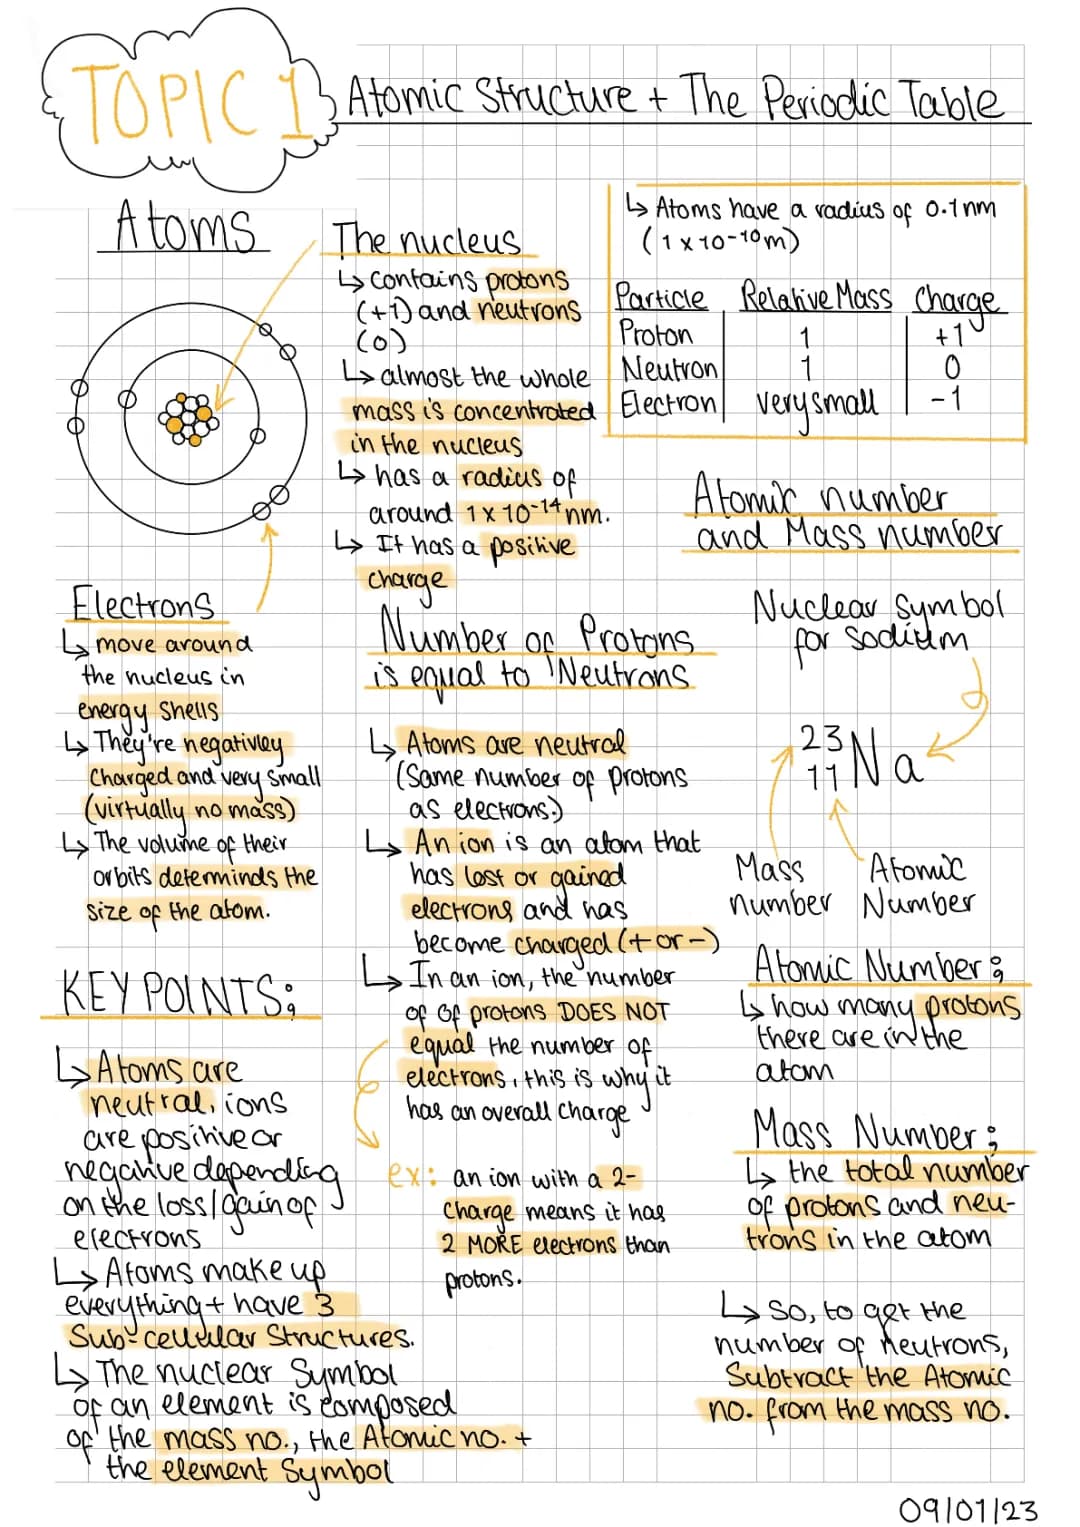 TOPIC 1
Atomic Structure + The Periodic Table
Atoms
The nucleus
↳ contains protons
(+1) and neutrons
(0)
↳ almost the whole
mass is concentrated
in the nucleus
↳ has a radius of
around 1x10-14 nm.
↳ It has a positive
charge
↳ Atoms have a radius of 0.1nm
(1x10-10m)
Particle Relative Mass Charge
Proton 1 +1
Neutron 1 0
Electron very small -1
Electrons
↳ move around
the nucleus in
energy shells
↳ They're negativley
charged and very small
(virtually no mass)
↳ The volume of their
orbits determinds the
size of the atom.
KEY POINTS;
↳ Atoms are
neutral, ions
are positive or
negative depending
on the loss/gain of
electrons
↳ Atoms make up
everything + have 3
Sub-cellular Structures.
↳ The nuclear Symbol
of an element is composed
of the mass no., the Atomic no. +
the element Symbol
Number of Protons
is equal to Neutrons
↳ Atoms are neutral
(Same number of protons
as electrons.)
↳ An ion is an atom that
has lost or gained
electrons and has
become charged (+ or -)
↳ In an ion, the number
of of protons DOES NOT
equal the number of
electrons, this is why it
has an overall charge
ex: an ion with a 2-
charge means it has
2 MORE electrons than
protons.
Atomic number
and Mass number
Nuclear Symbol
for Sodium
23
11 Na
Mass Atomic
number Number
Atomic Number;
↳ how many protons
there are in the
atom
Mass Number;
↳ the total number
of protons and neu-
trons in the atom
↳ So, to get the
number of neutrons,
Subtract the Atomic
no. from the mass no.
09/01/23